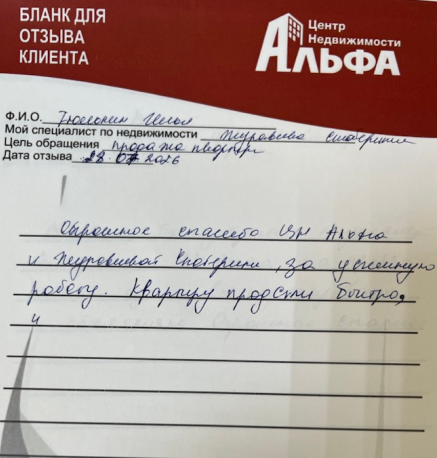 БЛАНК ДЛЯ
ОТЗЫВА
КЛИЕНТА
Центр
Недвижимости
АЛЬФА
Ф.И.О.
Мой специалист по недвижимости Журавлева Екатерина
Цель обращения продажа квартиры
Дата отзыва 28.07 2026
Огромное спасибо ЦН Альфа
и Журавлевой Екатерине, за успешную
работу. Квартиру продали быстро,
и